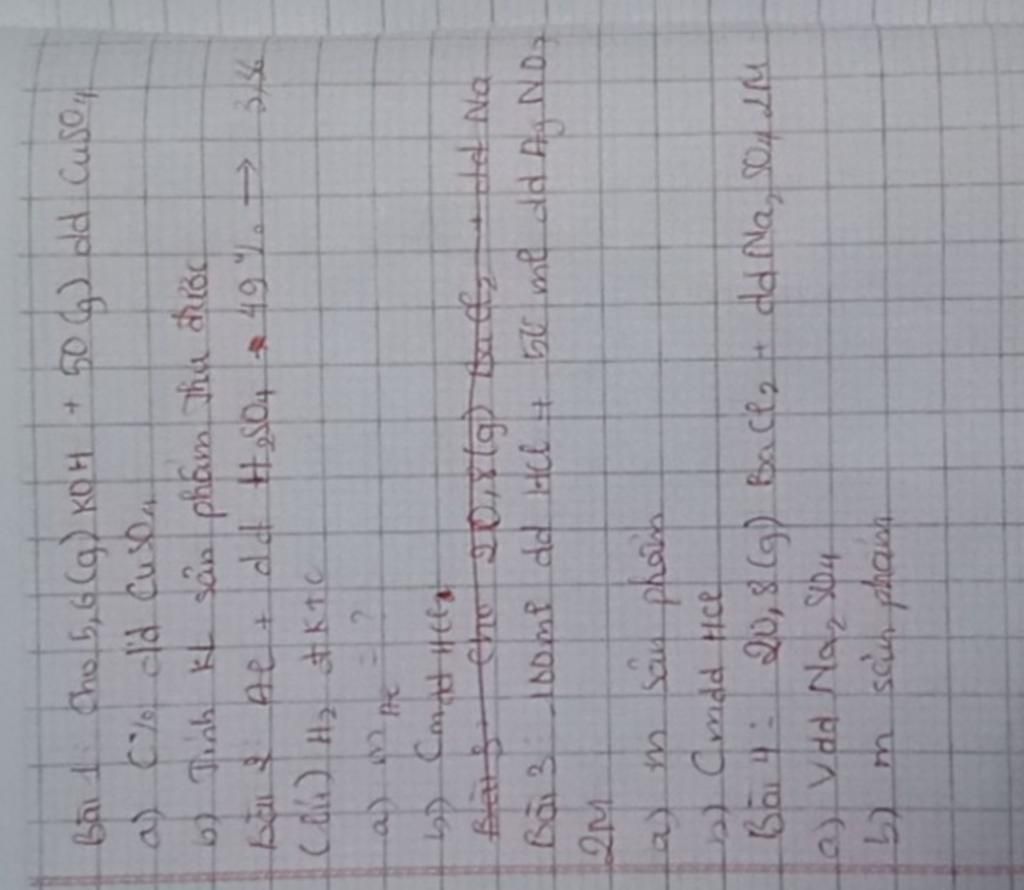 Bài 1: Cho 5,6(g) KOH + 50(g) dd CuSO4
a) C% dd CuSO4
b) Tính KL sản phẩm thu được
Bài 2 Al + dd H2SO4 49% → 3,36
(lít) H2 đktc
a) m Al = ?
b) Cmdd HCl
Bài 3: Cho 20,8(g) BaCl2 + dd Na
Bài 3: 100ml dd HCl + 50 ml dd AgNO3
2M
a) m sản phẩm
b) Cmdd HCl
Bài 4: 20,8(g) BaCl2 + dd Na2SO4 2M
a) Vdd Na2SO4
b) m sản phẩm